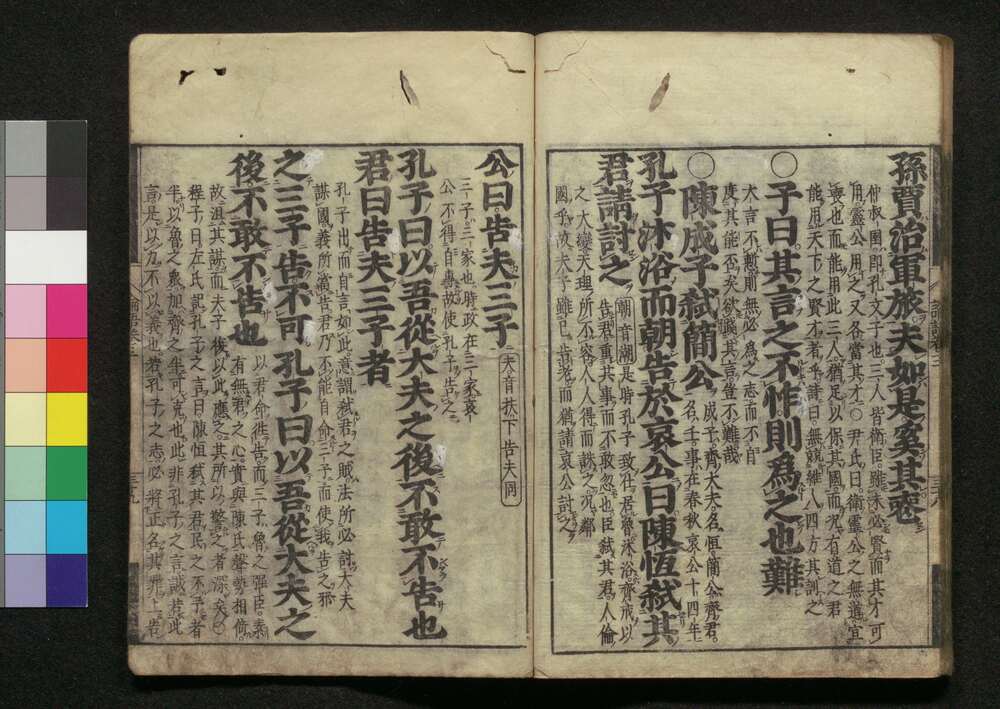 孫賈治軍旅夫如是奚其喪
仲叔圉即孔文子也三人皆衛臣雖未必賢而其才可
用靈公用之又各當其才○尹氏曰衛靈公之無道宜
喪也而能用此三人猶足以保其國而况有道之君
能用天下之賢才者乎詩曰無競維人四方其訓之
○子曰其言之不怍則爲之也難
大言不慙則無必爲之志而不自
度其能不矣欲踐其言豈不難哉
○陳成子弑簡公
成子齊大夫名恒簡公齊君
名壬事在春秋哀公十四年
孔子沐浴而朝告於哀公曰陳恆弑其
君請討之
朝音潮
是時孔子致仕居魯沐浴齊戒以
告君重其事而不敢忽也臣弑其君人倫
之大變天理所不容人人得而誅之况鄰
國乎故夫子雖已告老而猶請哀公討之
公曰告夫三子
夫音扶下告夫同
三子三家也時政在三家哀
公不得自專故使孔子告之
孔子曰以吾從大夫之後不敢不告也
君曰告夫三子者
孔子出而自言如此意謂弑君之賊法所必討大夫
謀國義所當告君乃不能自命三子而使我告之邪
之三子告不可孔子曰以吾從大夫之
後不敢不告也
以君命徃告而三子魯之強臣素
有無君之心實與陳氏聲勢相倚
故沮其謀而夫子復以此應之其所以警之者深矣○
程子曰左氏記孔子之言曰陳恒弑其君民之不予者
半以魯之衆加齊之半可克也此非孔子之言誠若此
言是以力不以義也若孔子之志必將正名其罪上告